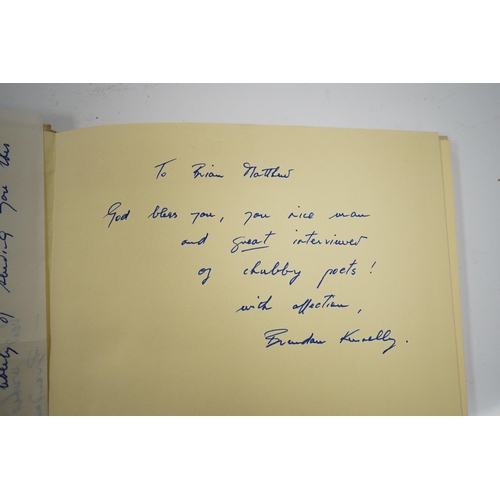 To Brian Matthew
God bless you, you nice man
and great interviewer
of chubby poets!
with affection,
Brendan Kennelly.
liberty of sending you this